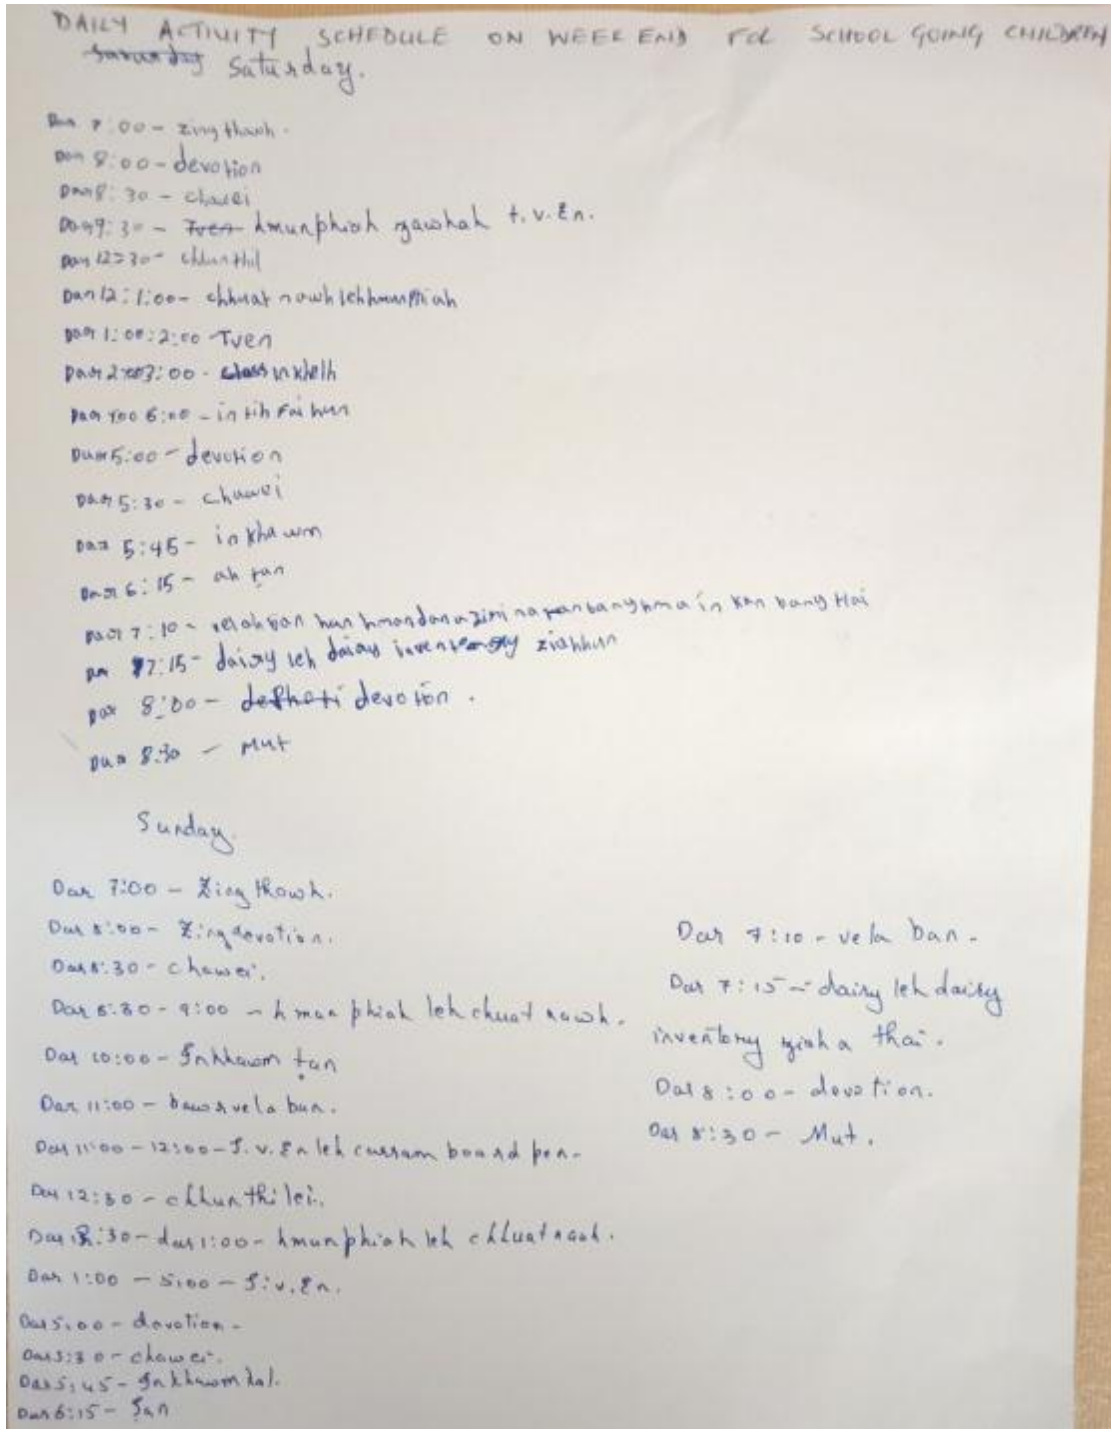 DAILY ACTIVITY SCHEDULE ON WEEK END FOR SCHOOL GOING CHILDREN
Saturday.
Dar 7:00 - zing thawh.
Dar 8:00 - devotion
Dar 8:30 - chawei
Dar 9:30 - hmunphiah zawhah t.v. En.
Dar 12:30 - chhunthil
Dar 12:1:00 - chhuat nawh leh hmunphiah
Dar 1:00:2:00 Tven
Dar 2:003:00 - class inkhelh
Dar 6:00 - in tih Fai hun
Dar 5:00 - devotion
Dar 5:30 - chawei
Dar 5:45 - in khawm
Dar 6:15 - an ṭan
Dar 7:10 - hun in kan bang
Dar 7:15 - daisy leh daisy ziahhun
Dar 8:00 - devotion.
Dar 8:30 - Mut
Sunday.
Dar 7:00 - Zing thowh.
Dar 8:00 - Zing devotion.
Dar 8:30 - chawei.
Dar 8:30 - 9:00 - hmun phiah leh chuat nawh.
Dar 10:00 - Inkhawm ṭan
Dar 11:00 - bawr vela ban.
Dar 11:00 - 12:00 - T.v. En leh carram board pen-
Dar 12:30 - chhun thilei.
Dar 12:30 - dar 1:00 - hmunphiah leh chhuat nawh.
Dar 1:00 - 5:00 - T.v. En.
Dar 5:00 - devotion -
Dar 5:30 - chawei.
Dar 5:45 - Inkhawm kal.
Dar 6:15 - Ṭan
Dar 7:10 - vela ban -
Dar 7:15 - dairy leh dairy
inventory ziah a thai.
Dar 8:00 - devotion.
Dar 8:30 - Mut.